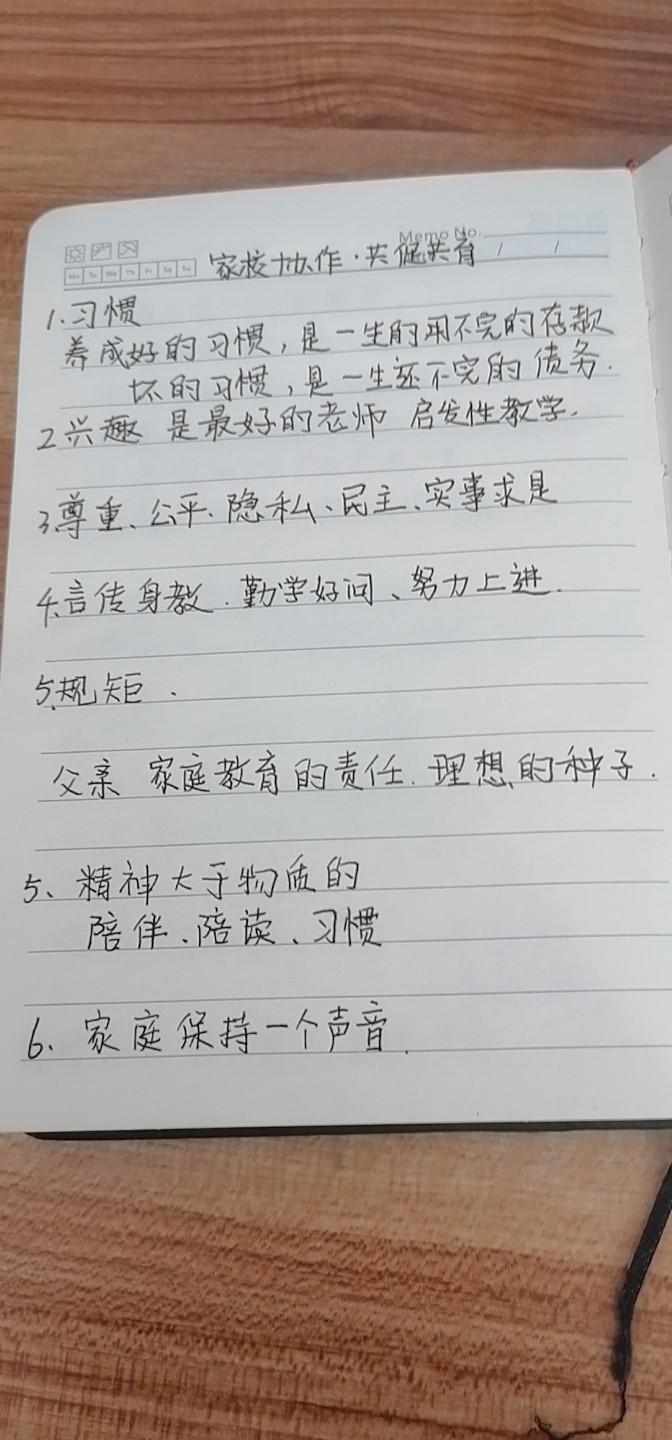 Memo No.
Mo Tu We Th Fr Sa Su
家校协作·共促共育 / /
1.习惯
养成好的习惯，是一生的用不完的存款
坏的习惯，是一生还不完的债务.
2.兴趣 是最好的老师 启发性教学.
3.尊重、公平、隐私、民主、实事求是
4.言传身教.勤学好问、努力上进.
5.规矩.
父亲 家庭教育的责任.理想的种子.
5、精神大于物质的
陪伴、陪读、习惯
6、家庭保持一个声音.